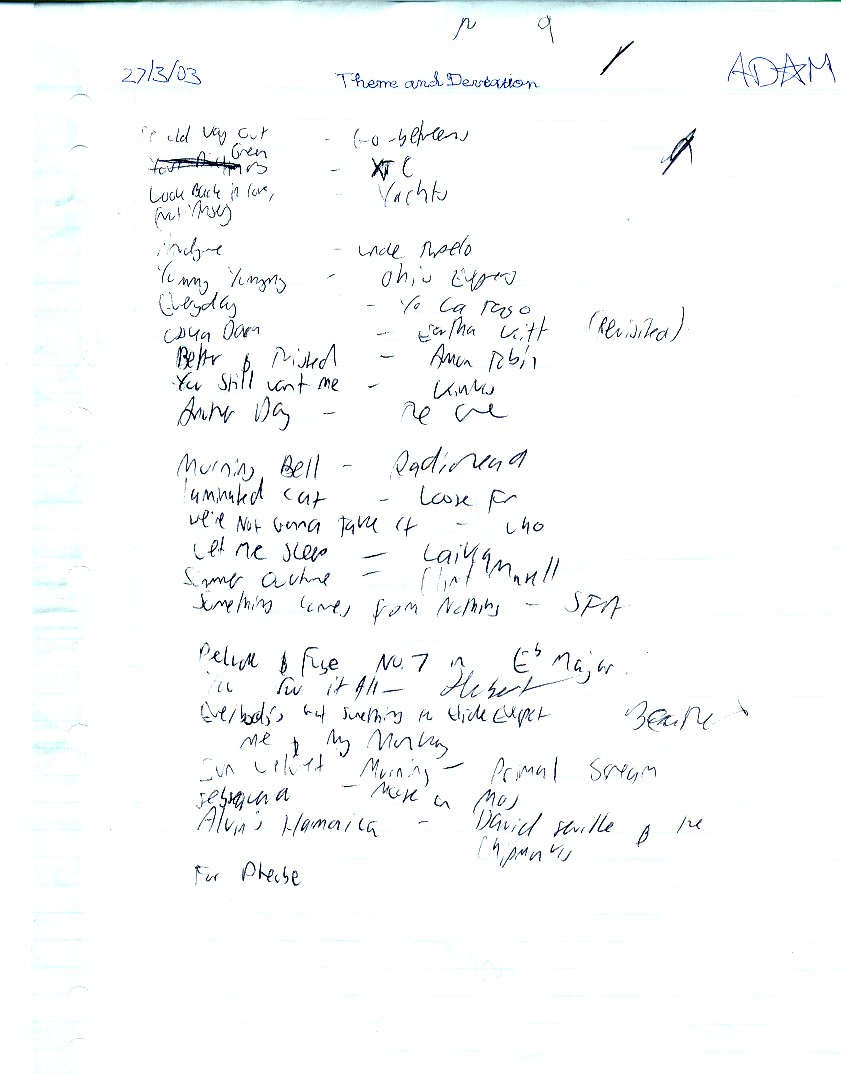 27/3/03 Theme and Deviation ADAM
old way out - Go-betweens
Green
- XTC
Look Back in love, - Yachts
(not Anger)
- uncle
Yummy Yummy - Ohio Express
Everyday - Yo La Tengo
- Eartha Kitt (Revisited)
Better & Twisted - Amon Tobin
You Still want me - Kinks
Another Day - The Cure
Morning Bell - Radiohead
laminated cat - Loose Fur
we're Not Gonna Take It - Who
Let Me Sleep =
=
Something Comes from Nothing - SFA
Prelude & Fuge No. 7 in Eb Major.
You saw it All - Herbert
Everybody's got something to Hide Except Beatles
me & My Monkey
Some Velvet Morning - Primal Scream
- Mouse on Mars
Alvin's Harmonica - David Seville & the
Chipmunks
For Phoebe